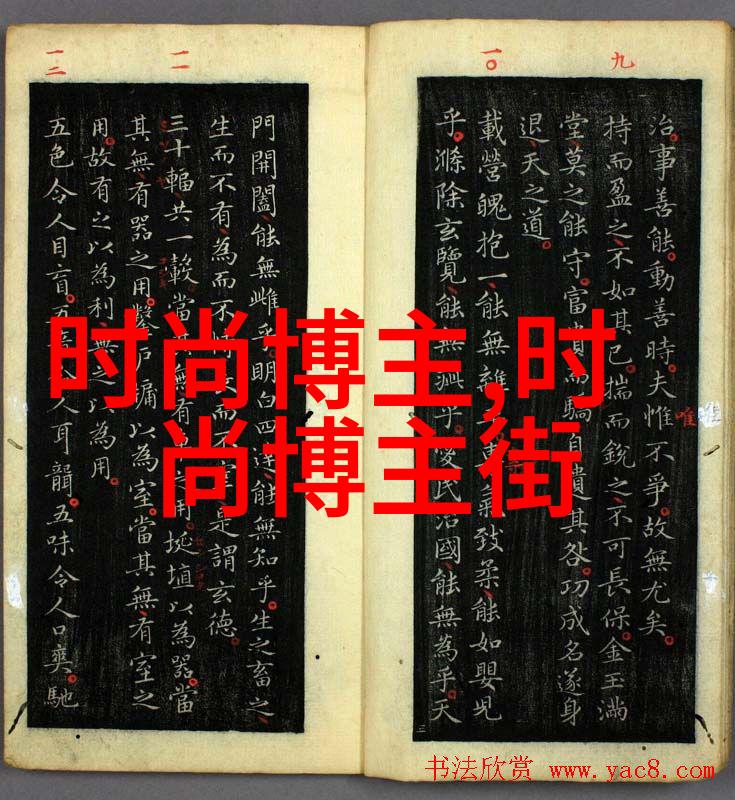 九
治事善能動善時夫惟不爭故無尤矣
唯
持而盈之不如其已揣而銳之不可長保金玉滿
堂莫之能守富貴而驕自遺其咎功成名遂身
退天之道
一〇
載營魄抱一能無離氣致柔能如嬰兒
乎滌除玄覽能無疵乎愛民治國能無為乎天
門開闔能無雌乎明白四達能無知乎生之畜之
生而不有為而不而不宰是謂玄德
一一
三十輻共一轂當其無有用埏埴以為器當
其無有器之用鑿戶牖以為室當其無有室之
用故有之以為利無之以為用
一二
五色令人目盲五音令人耳聾五味令人口爽馳
时尚博主,时
尚博主街
书法欣赏 www.yac8.com